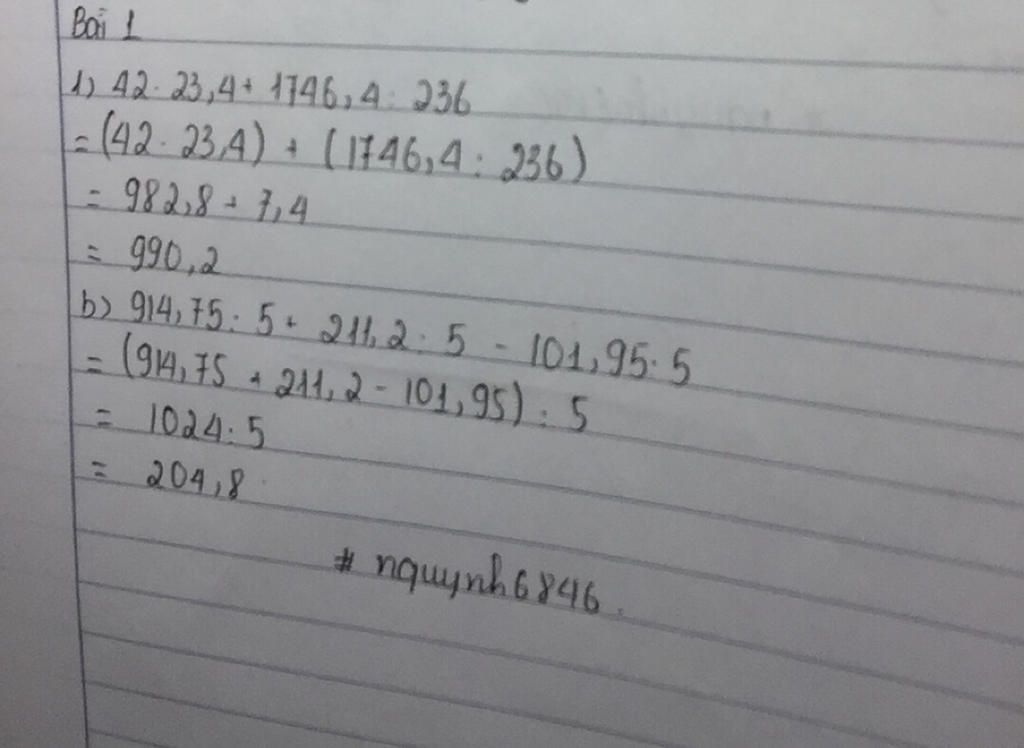 Bài 1
1) 42 . 23,4 + 1746,4 : 236
= (42 . 23,4) + (1746,4 : 236)
= 982,8 + 7,4
= 990,2
b) 914,75 : 5 + 211,2 : 5 - 101,95 : 5
= (914,75 + 211,2 - 101,95) : 5
= 1024 : 5
= 204,8
# nquynh6846.